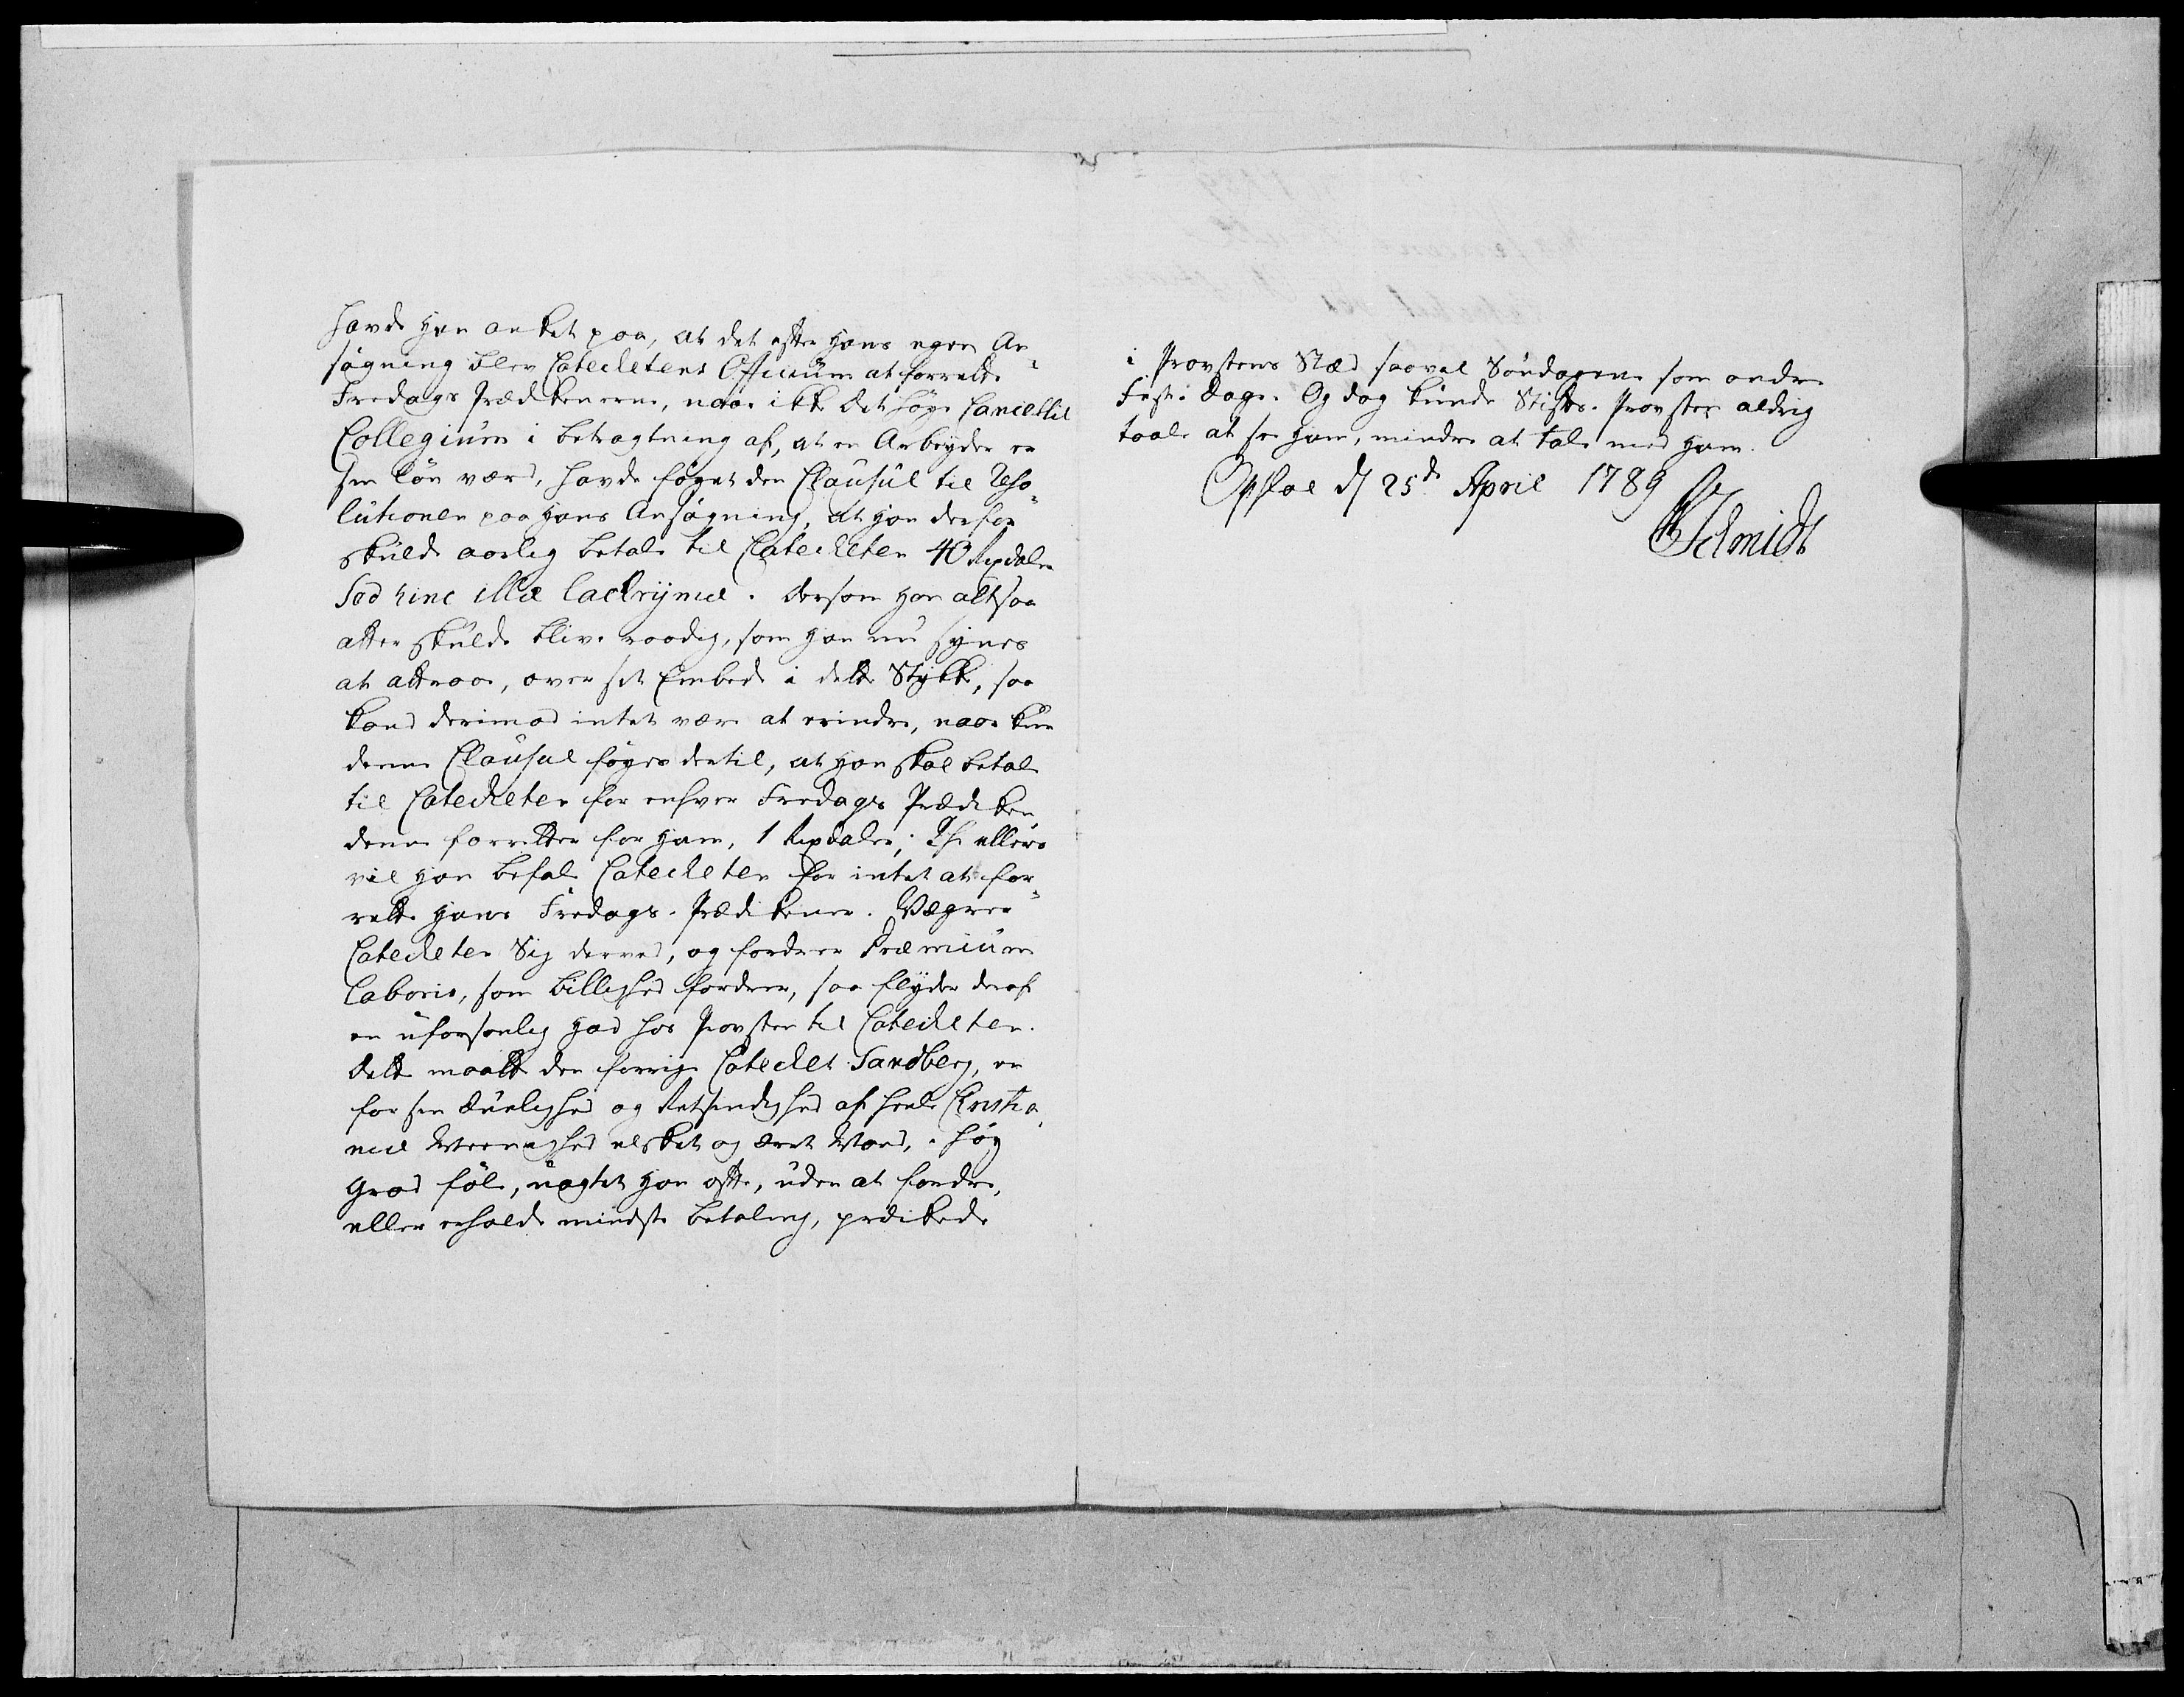 havde han anket paa, at det efter hans egen An-
søgning blev Catechetens Officium at forrette
Fredags Prædikenerne, naar ikke det høye Cancellie
Collegium i betragtning af, at en Arbeyder er
sin Løn værd, havde føyet den Clausul til Reso-
lutionen paa hans Ansøgning, at han derfor
skulde aarlig betale til Catecheten 40 Rixdaler
Sed hinc illæ lachrymæ. Dersom han altsaa
atter skulde blive raadig, som han nu synes
at attraae, over sit Embede i dette Stykke, saa
kand derimod intet være at erindre, naar kun
denne Clausul føyes dertil, at han skal betale
til Catecheten for enhver Fredags Prædiken,
denne forretter for ham, 1 Rixdaler; Thi ellers
vil han befale Catecheten for intet at for-
rette hans Fredags-Prædikener. Vægrer
Catecheten Sig derved, og fordrer Præmium
Laboris, som billighed fordrer, saa flyder deraf
en uforsonlig Had hos Provsten til Catecheten.
Dette maatte den forrige Catechet Sandberg, en
for sin Duelighed og Retsindighed af heele Christia-
niæ Meenighed elsket og æret Mand, i høy
Grad føle, uagtet han ofte, uden at fordre,
eller erholde mindste betaling, prædikede
i Provstens Stæd saavel Søndagene som andre
Fest-Dage. Og dog kunde Stifts-Provsten aldrig
taale at see ham, mindre at tale med ham.
Opsloe d 25de April 1789
Schmidt